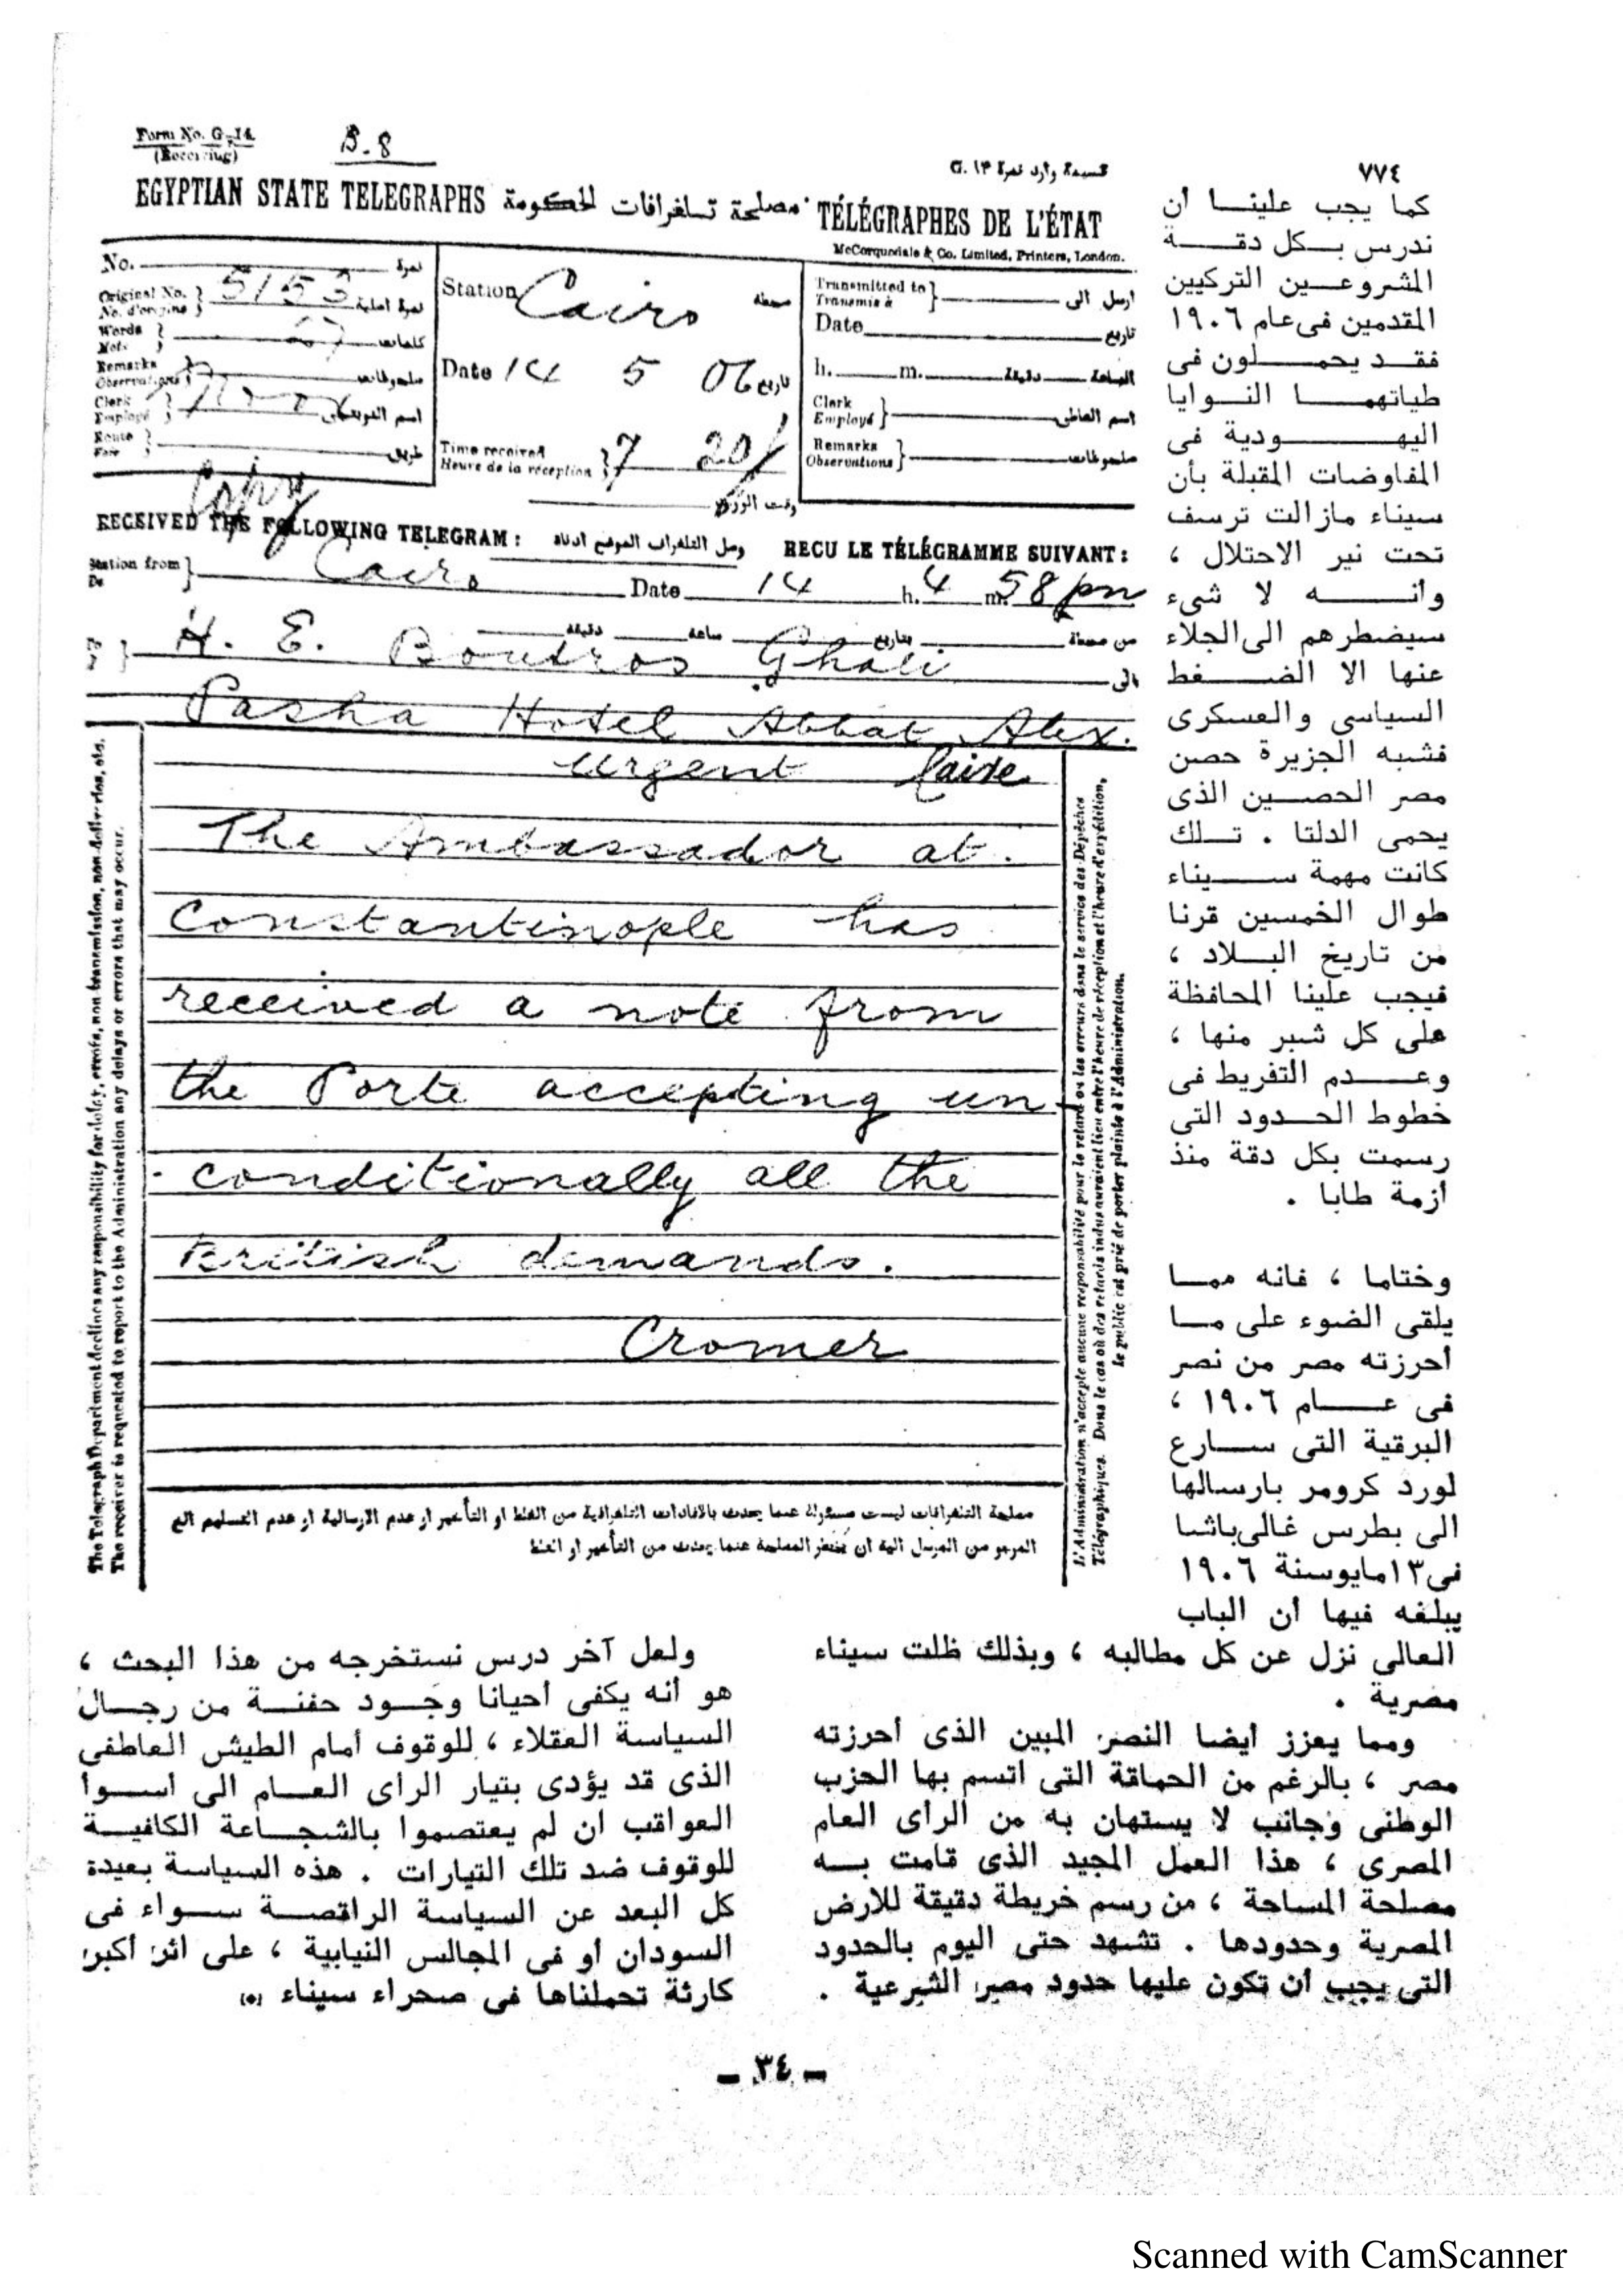 Form No. G-14.
(Receiving)
B-8
EGYPTIAN STATE TELEGRAPHS مصلحة تلغرافات الحكومة TÉLÉGRAPHES DE L'ÉTAT
McCorquodale & Co. Limited, Printers, London.
No. نمرة
Original No. 5153 نمرة اصلية
No. d'origine
Words كلمات
Mots
Remarks ملحوظات
Observations
Clerk
Employé
Route طريق
Station Cairo محطة
Date 14 5 06 تاريخ
Time received 7 20
Heure de la réception
Transmitted to ارسل الى
Transmis à
Date تاريخ
h. m. دقيقة الساعة
Clerk
Employé
Remarks ملحوظات
Observations
Copy
RECEIVED THE FOLLOWING TELEGRAM: وصل التلغراف الموضح ادناه RECU LE TÉLÉGRAMME SUIVANT:
Station from Cairo Date 14 h. 4 m. 58 pm
De
من محطة بتاريخ ساعة دقيقة
H. E. Boutros Ghali الى
Pasha Hotel Abbat Alex.
urgent
The Ambassador at
Constantinople has
received a note from
the Porte accepting un
- conditionally all the
British demands.
Cromer
The Telegraph Department declines any responsibility for delay, errors, non transmission, non deliveries, etc.
The receiver is requested to report to the Administration any delays or errors that may occur.
L'Administration n'accepte aucune responsabilité pour le retard ou les erreurs dans le service des Dépêches
Télégraphiques. Dans le cas où des retards indus auraient lieu entre l'heure de réception et l'heure d'expédition,
le public est prié de porter plainte à l'Administration.
مصلحة التلغرافات ليست مسئولة عما يحدث بالافادات التلغرافية من الغلط او التأخير او عدم الارسالية او عدم التسليم الخ
المرجو من المرسل اليه ان يخطر المصلحة عما يحدث من التأخير او الغلط
٧٧٤
كما يجب علينا أن
ندرس بكل دقة
المشروعين التركيين
المقدمين فى عام ١٩٠٦
فقد يحملون فى
طياتهما النوايا
اليهودية فى
المفاوضات المقبلة بأن
سيناء مازالت ترسف
تحت نير الاحتلال ،
وانه لا شىء
سيضطرهم الى الجلاء
عنها الا الضغط
السياسى والعسكرى
فشبه الجزيرة حصن
مصر الحصين الذى
يحمى الدلتا . تلك
كانت مهمة سيناء
طوال الخمسين قرنا
من تاريخ البلاد ،
فيجب علينا المحافظة
على كل شبر منها ،
وعدم التفريط فى
خطوط الحدود التى
رسمت بكل دقة منذ
أزمة طابا .
وختاما ، فانه مما
يلقى الضوء على ما
أحرزته مصر من نصر
فى عام ١٩٠٦ ،
البرقية التى سارع
لورد كرومر بارسالها
الى بطرس غالى باشا
فى ١٣ مايو سنة ١٩٠٦
يبلغه فيها أن الباب
العالى نزل عن كل مطالبه ، وبذلك ظلت سيناء
مصرية .
ومما يعزز أيضا النصر المبين الذى أحرزته
مصر ، بالرغم من الحماقة التى اتسم بها الحزب
الوطنى وجانب لا يستهان به من الرأى العام
المصرى ، هذا العمل المجيد الذى قامت به
مصلحة المساحة ، من رسم خريطة دقيقة للارض
المصرية وحدودها . تشهد حتى اليوم بالحدود
التى يجب أن تكون عليها حدود مصر الشرعية .
ولعل آخر درس نستخرجه من هذا البحث ،
هو أنه يكفى أحيانا وجود حفنة من رجال
السياسة العقلاء ، للوقوف أمام الطيش العاطفى
الذى قد يؤدى بتيار الرأى العام الى أسوا
العواقب ان لم يعتصموا بالشجاعة الكافية
للوقوف ضد تلك التيارات . هذه السياسة بعيدة
كل البعد عن السياسة الراقصة سواء فى
السودان أو فى المجالس النيابية ، على اثر أكبر
كارثة تحملناها فى صحراء سيناء (٥)
- ٣٤ -
Scanned with CamScanner